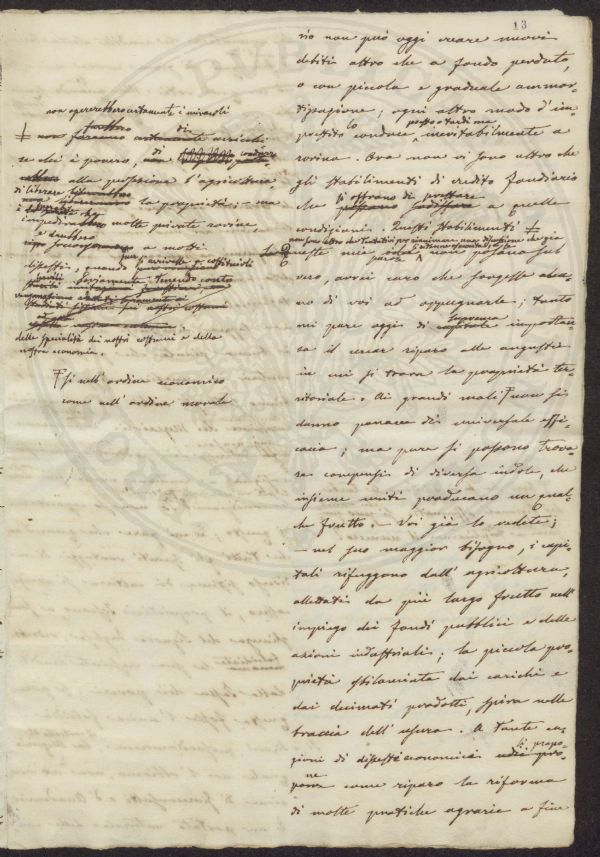 13
rio non può oggi creare nuovi
debiti altro che a fondo perduto,
o con piccola e graduale ammor-
tizzazione; ogni altro modo d'im-
presto lo conduce presto o tardi inevitabilmente a
rovina. Ora non vi sono altro che
gli stabilimenti di credito fondiario
che si offrano di prestare a quelle
condizioni. Questi stabilimenti
non sono altro che tentativi per
queste mie parole non posano sul
vero, avrei caro che sorgesse alcu-
no di voi ad oppugnarle; tanto
mi pare oggi di suprema importan-
za il recar riparo alle angustie
in cui si trova la proprietà ter-
ritoriale. Ai grandi mali non si
danno panacee di universale effi-
cacia; ma pure si possono trova-
re compensi di diversa indole, che
insieme uniti producano un qual-
che frutto. - Voi già lo vedete;
- nel suo maggior bisogno, i capi-
tali rifuggono dall'agricoltura,
allettati da più largo frutto nell'
impiego dei fondi pubblici e delle
azioni industriali; la piccola pro-
prietà stilanciata dai carichi e
dai decimati prodotti, spira nelle
braccia dell'usura. A tante ca-
gioni di dissesto economico si propo-
ne come riparo la riforma
di molte pratiche agrarie a fine
non opererebbero certamente i miracoli
di arricchi-
re chi è povero, di condurre
alla perfezione l'agricoltura,
di liberare la proprietà; - ma
impedirebbero molte private rovine,
e darebbero a molti
dissesti, quando si arrivasse a costituirli
seriamente tenendo conto
delle specialità dei nostri costumi e della
nostra economia.
sì nell'ordine economico
come nell'ordine morale